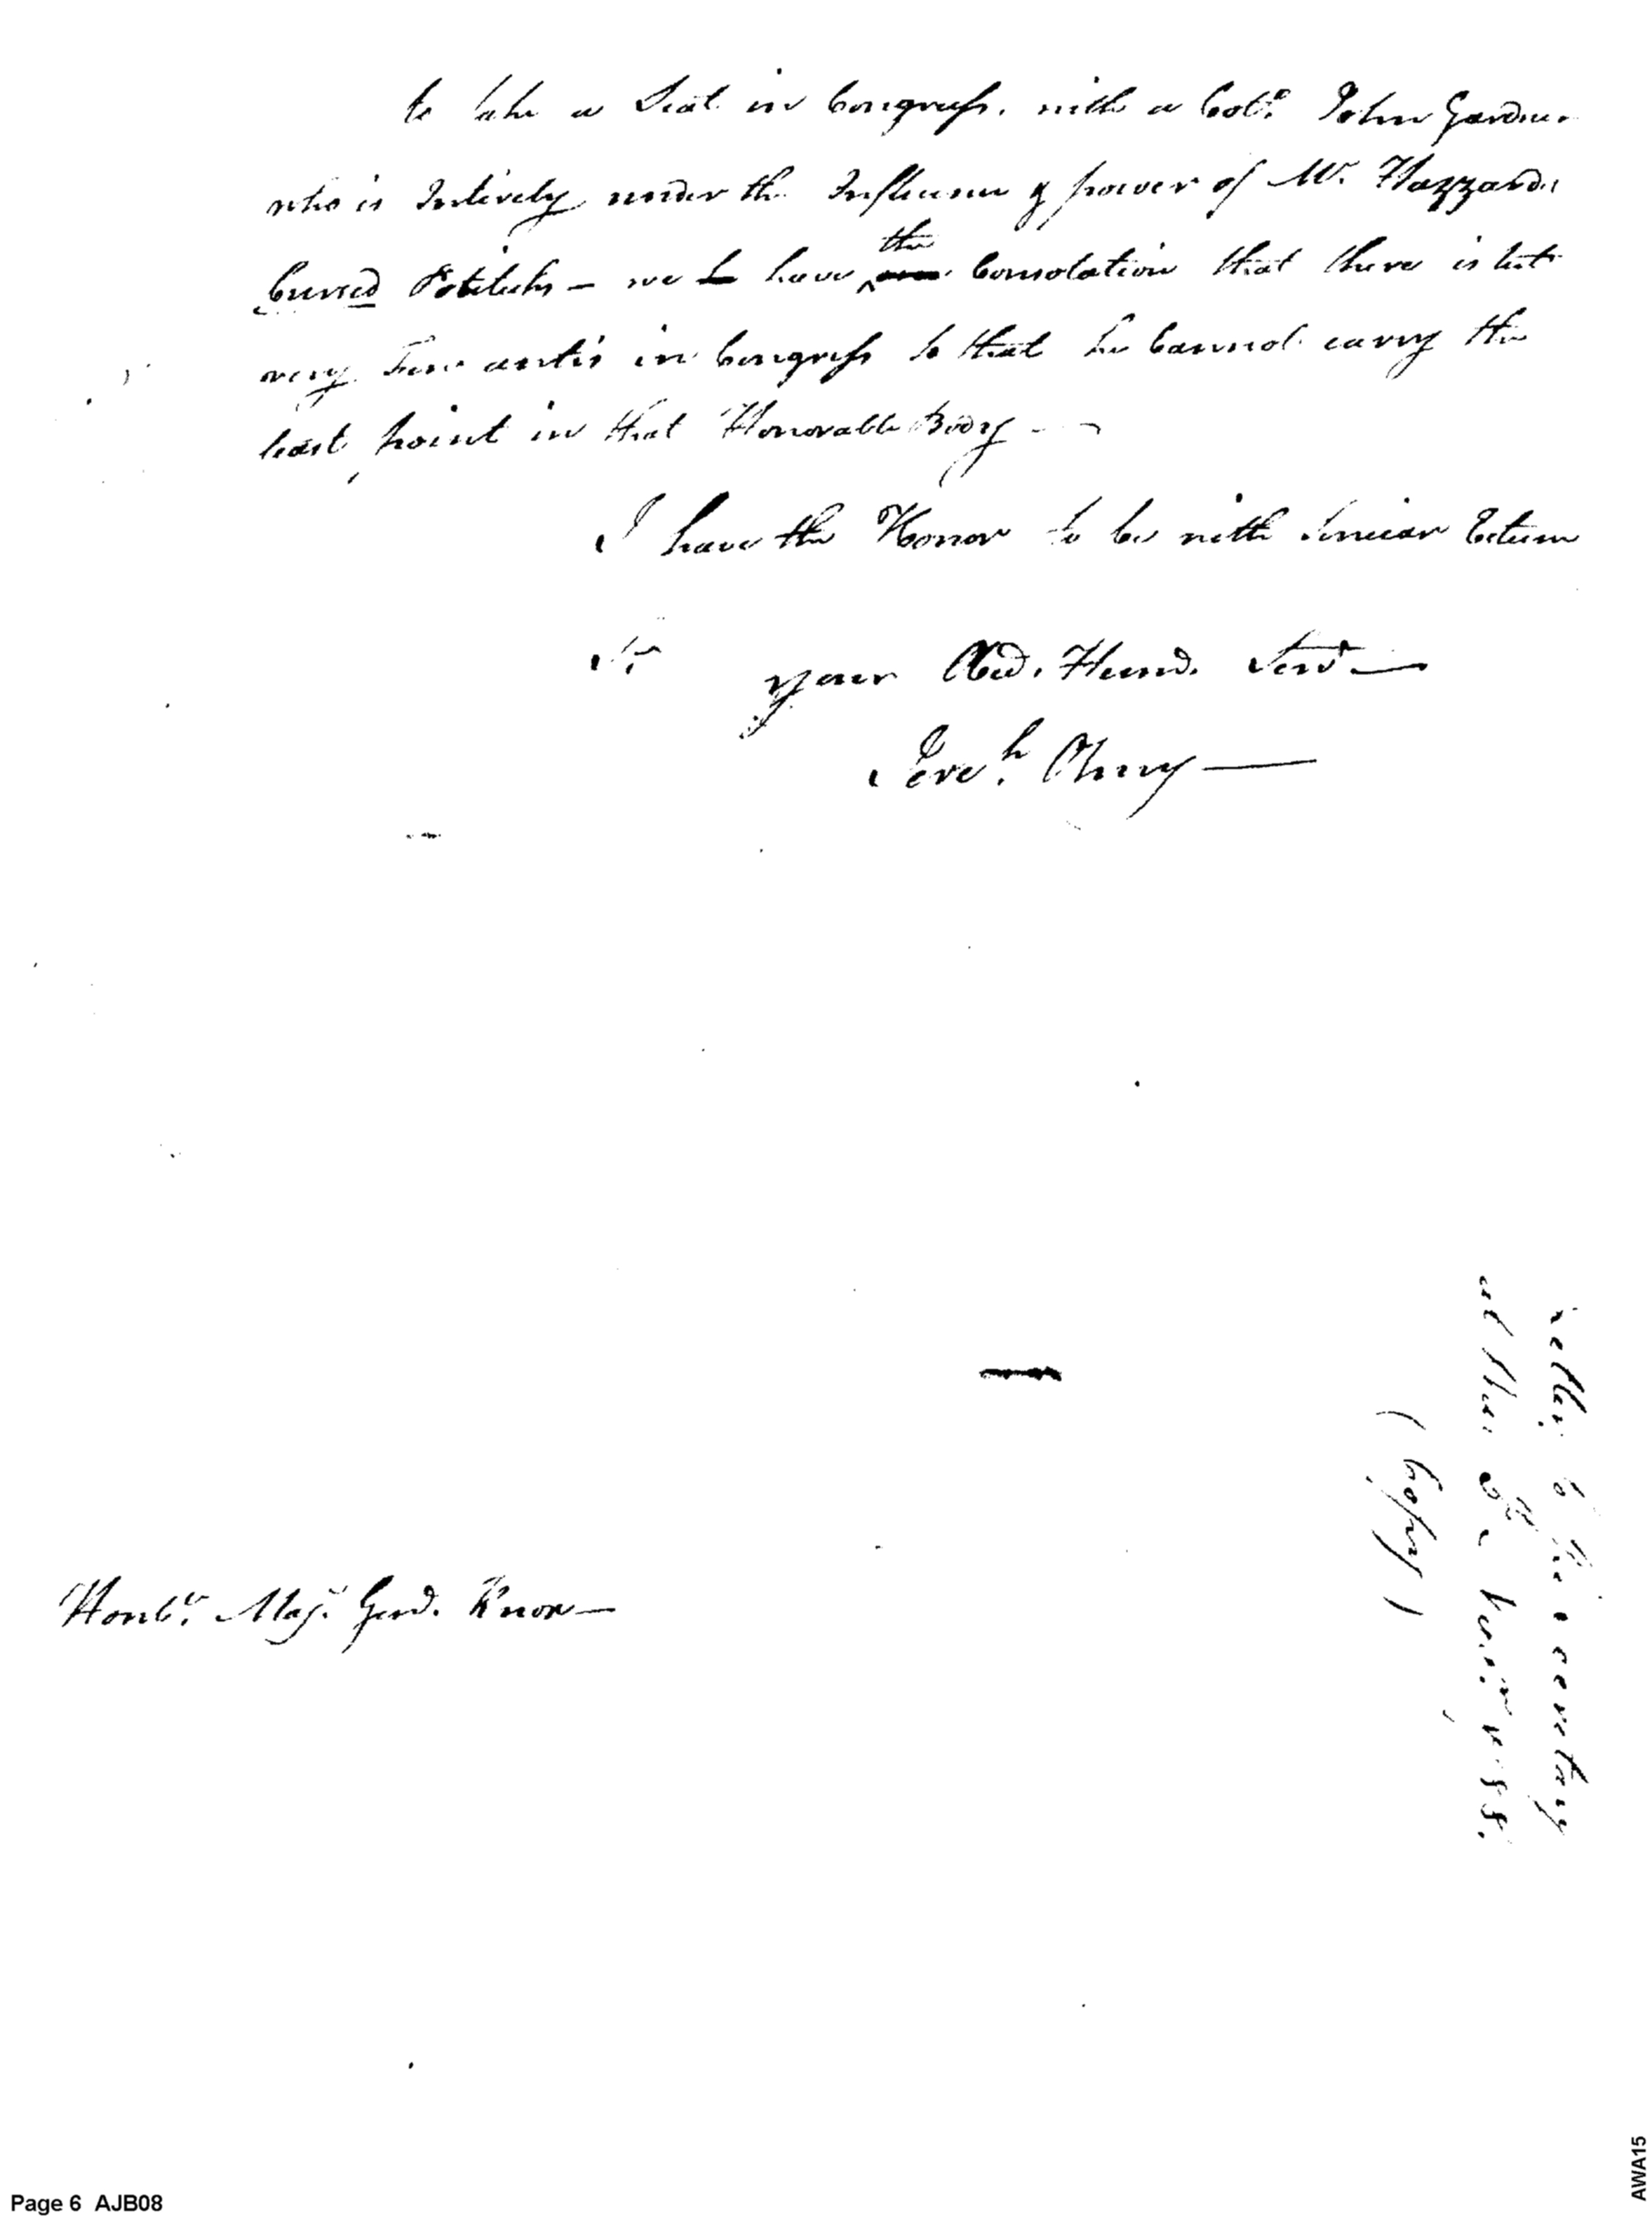 to take a Seat in Congress. with a Col.º John Gardner
who is Intirely under the Influence & power of Mr. Hazzards
Cursed Politicks — we h have the Consolation that there is but
very Few antis in Congress so that he Cannot carry the
least point in that Honorable Body —
I have the Honor to be with Sincear Esteem
Sir
your Obd. Humd. Servt —
Jereh. Olney —
Honble. Majr. Genl. Knox —
Letter to the Secretary
at War
1788.
(Copy)
Page 6 AJB08
AWA15